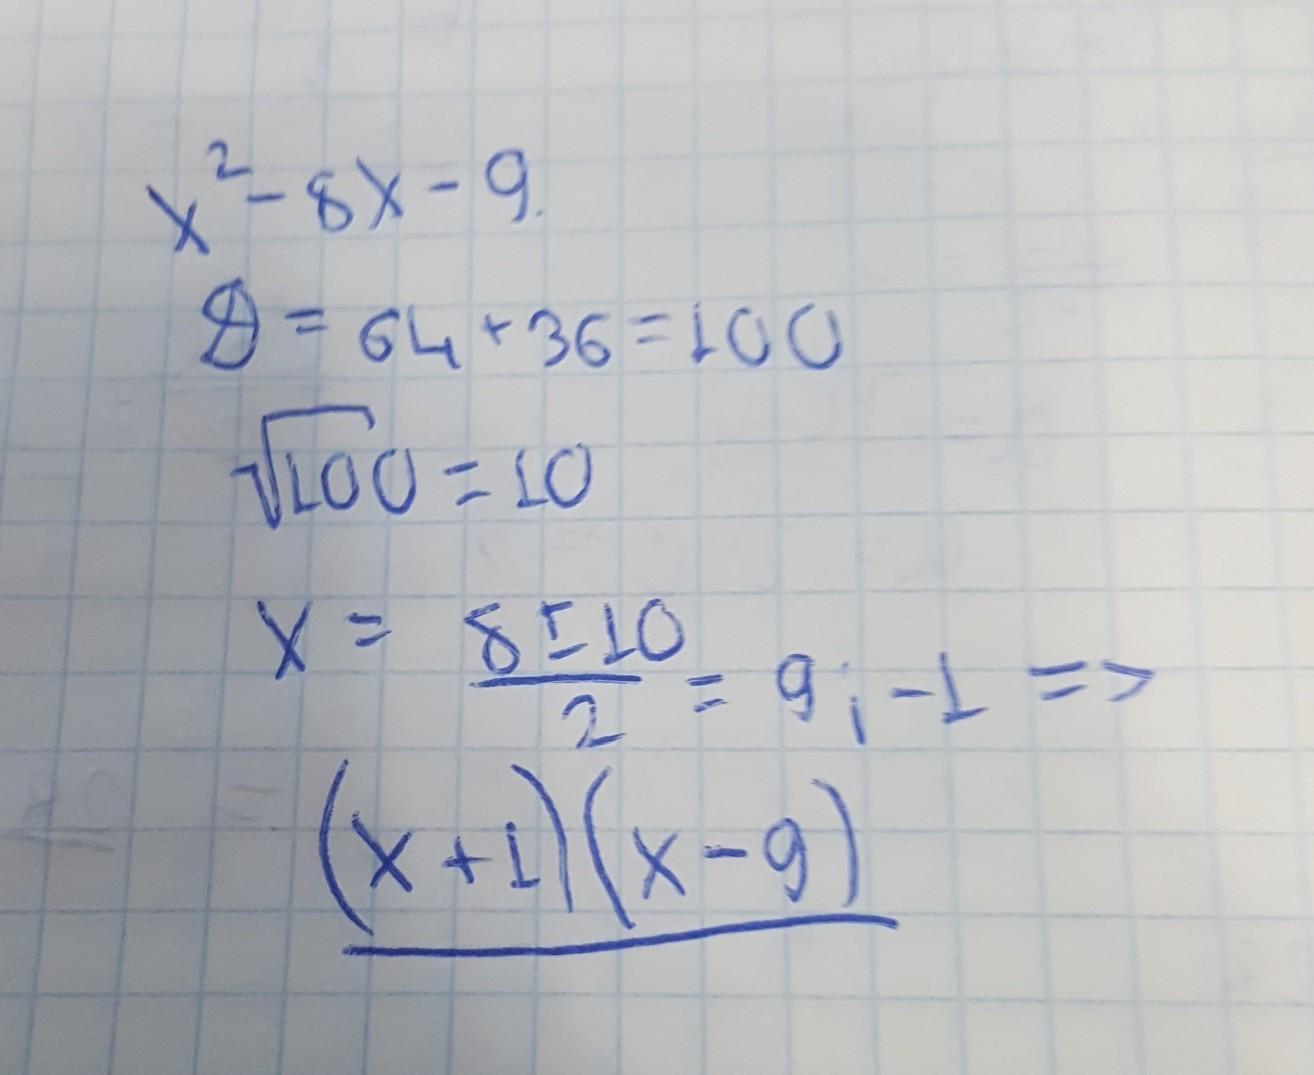 x² - 8x - 9.
D = 64 + 36 = 100
√100 = 10
x = (8 ± 10)/2 = 9; -1 =>
(x + 1)(x - 9)